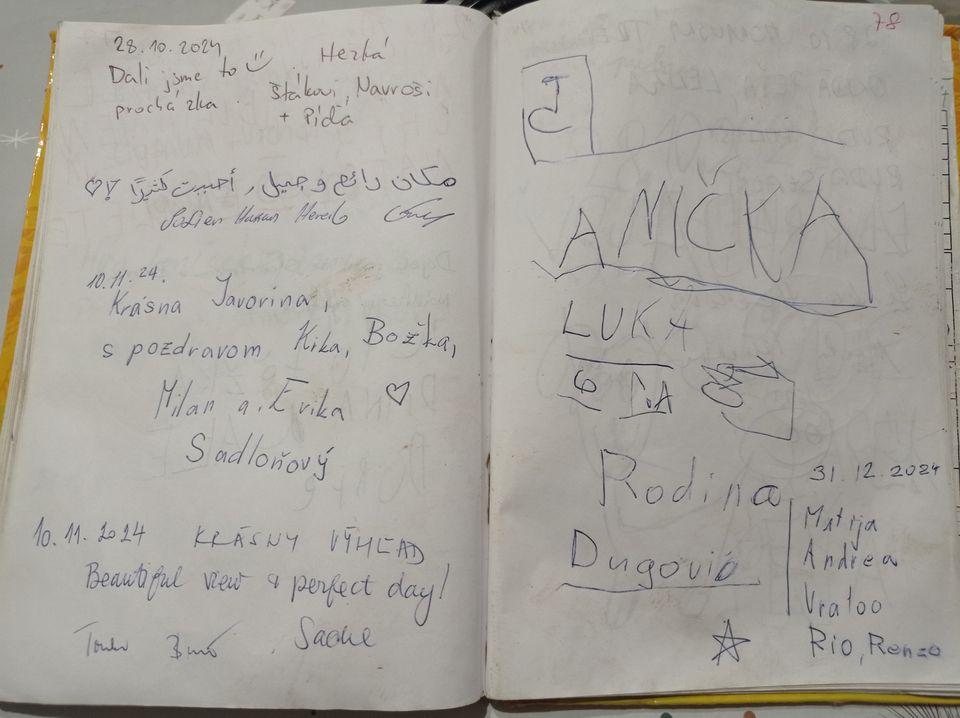 28.10.2024
Dali jsme to
procházka. Hezká
Štákovi, Navroši
+ Píďa
مكان رائع وجميل, أحببت كثيرًا
10.11.24.
Krásna Javorina,
s pozdravom Kika, Božka,
Milan a Erika
Sadloňový
10.11.2024 KRÁSNY VÝHĽAD
Beautiful view & perfect day!
78
ANIČKA
LUKA
6
Rodina
Dugovič
31.12.2024
Matija
Andrea
Vratoo
Rio, Renzo